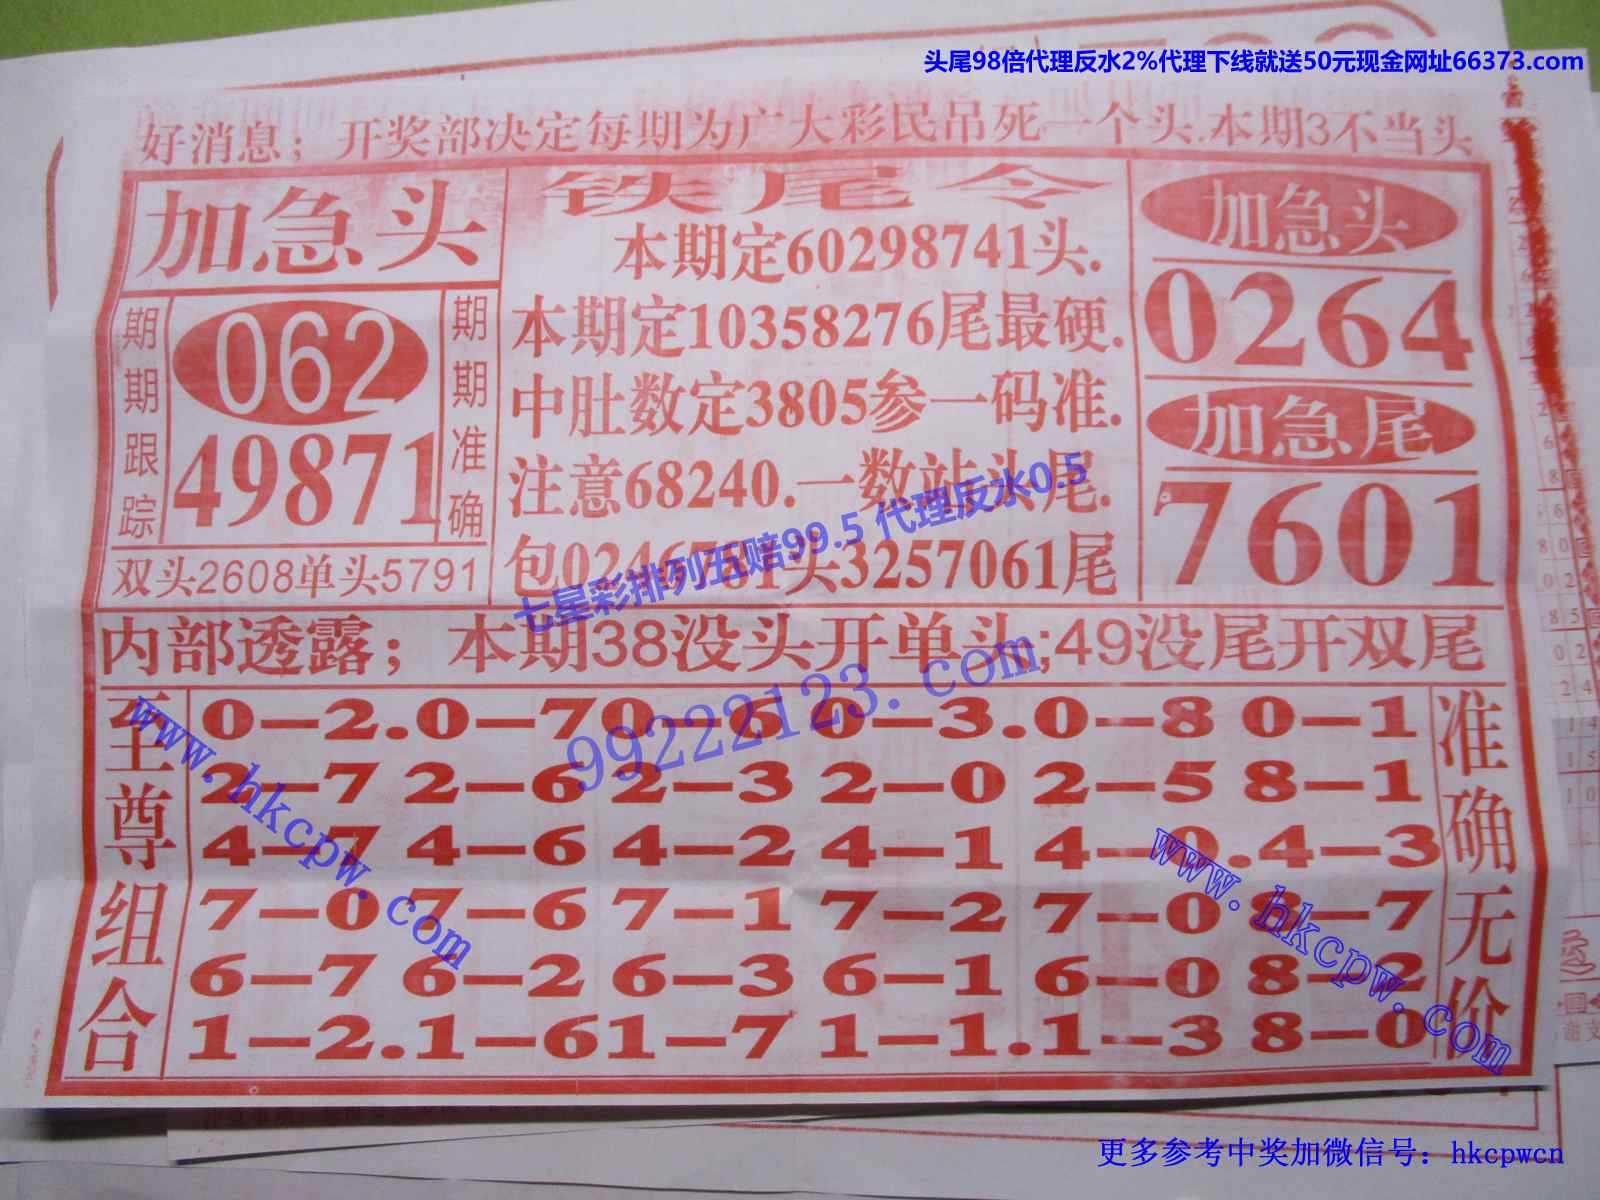 头尾98倍代理反水2%代理下线就送50元现金网址66373.com
好消息；开奖部决定每期为广大彩民吊死一个头.本期3不当头
加急头
期期跟踪
062
49871
期期准确
双头2608单头5791
铁尾令
本期定60298741头.
本期定10358276尾最硬.
中肚数定3805参一码准.
注意68240.一数站头尾.
包0246781头3257061尾
加急头
0264
加急尾
7601
七星彩排列五赔99.5 代理反水0.5
内部透露；本期38没头开单头;49没尾开双尾
99222123.com
至尊组合
0－2.0－7 0－6 0－3.0－8 0－1
2－7 2－6 2－3 2－0 2－5 8－1
4－7 4－6 4－2 4－1 4－0.4－3
7－0 7－6 7－1 7－2 7－0 8－7
6－7 6－2 6－3 6－1 6－0 8－2
1－2.1－6 1－7 1－1.1－3 8－0
准确无价
www.hkcpw.com
www.hkcpw.com
更多参考中奖加微信号：hkcpwcn